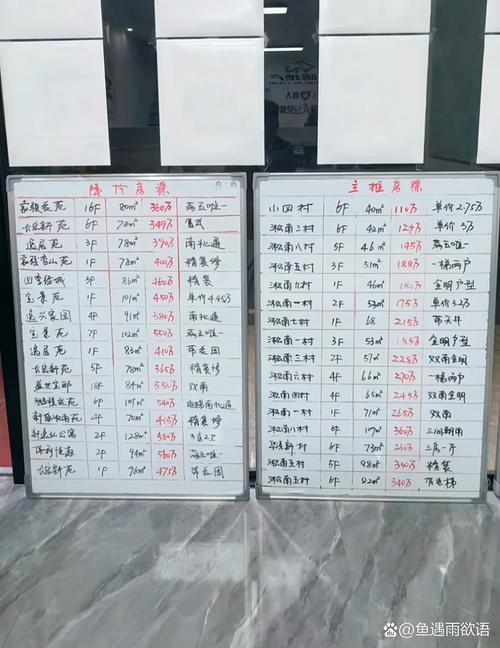 降价房源
嘉骏花苑 16F 80m² 360万 满五唯一
长岛新苑 6F 78m² 349万 复式
逸居苑 3F 78m² 390万 南北通
嘉骏香山苑 1F 78m² 400万 精装修
四季绿城 3F 86m² 460万 精装
宝景苑 1F 101m² 450万 单价4.45万
逸兴家园 4F 91m² 380万 南北通
宝景苑 7F 102m² 550万 满五唯一
逸居苑 1F 83m² 410万 带花园
长岛新苑 5F 78m² 365万 精装修
18F 84m² 550万 双南
6F 107m² 540万 电梯南北通
4F 70m² 415万 精装修
公寓 2F 128m² 580万 3房2卫
保利 2F 94m² 560万 满五唯一
长岛新苑 1F 96m² 475万 带花园
主推房源
小四村 6F 40m² 110万 单价2.75万
淞南三村 6F 42m² 129万 单价3万
淞南八村 5F 46m² 145万 满五唯一
淞南五村 3F 51m² 188万 一梯两户
淞南九村 1F 46m² 180万 全明户型
淞南一村 2F 53m² 175万 单价3.2万
淞南七村 1F 68 215万 带天井
淞南一村 3F 53m² 185万 全明户型
淞南三村 2F 57m² 228万 双南全明
淞南六村 4F 66m² 270万 一梯两户
淞南四村 4F 65m² 245万 双南全明
淞南一村 1F 71m² 265万 双南
淞南八村 6F 107m² 360万 三间朝南
华浜新村 6F 73m² 230万 三房一厅
淞南五村 5F 98m² 330万 精装
淞南五村 6F 82m² 340万 有电梯
鱼遇雨欲语